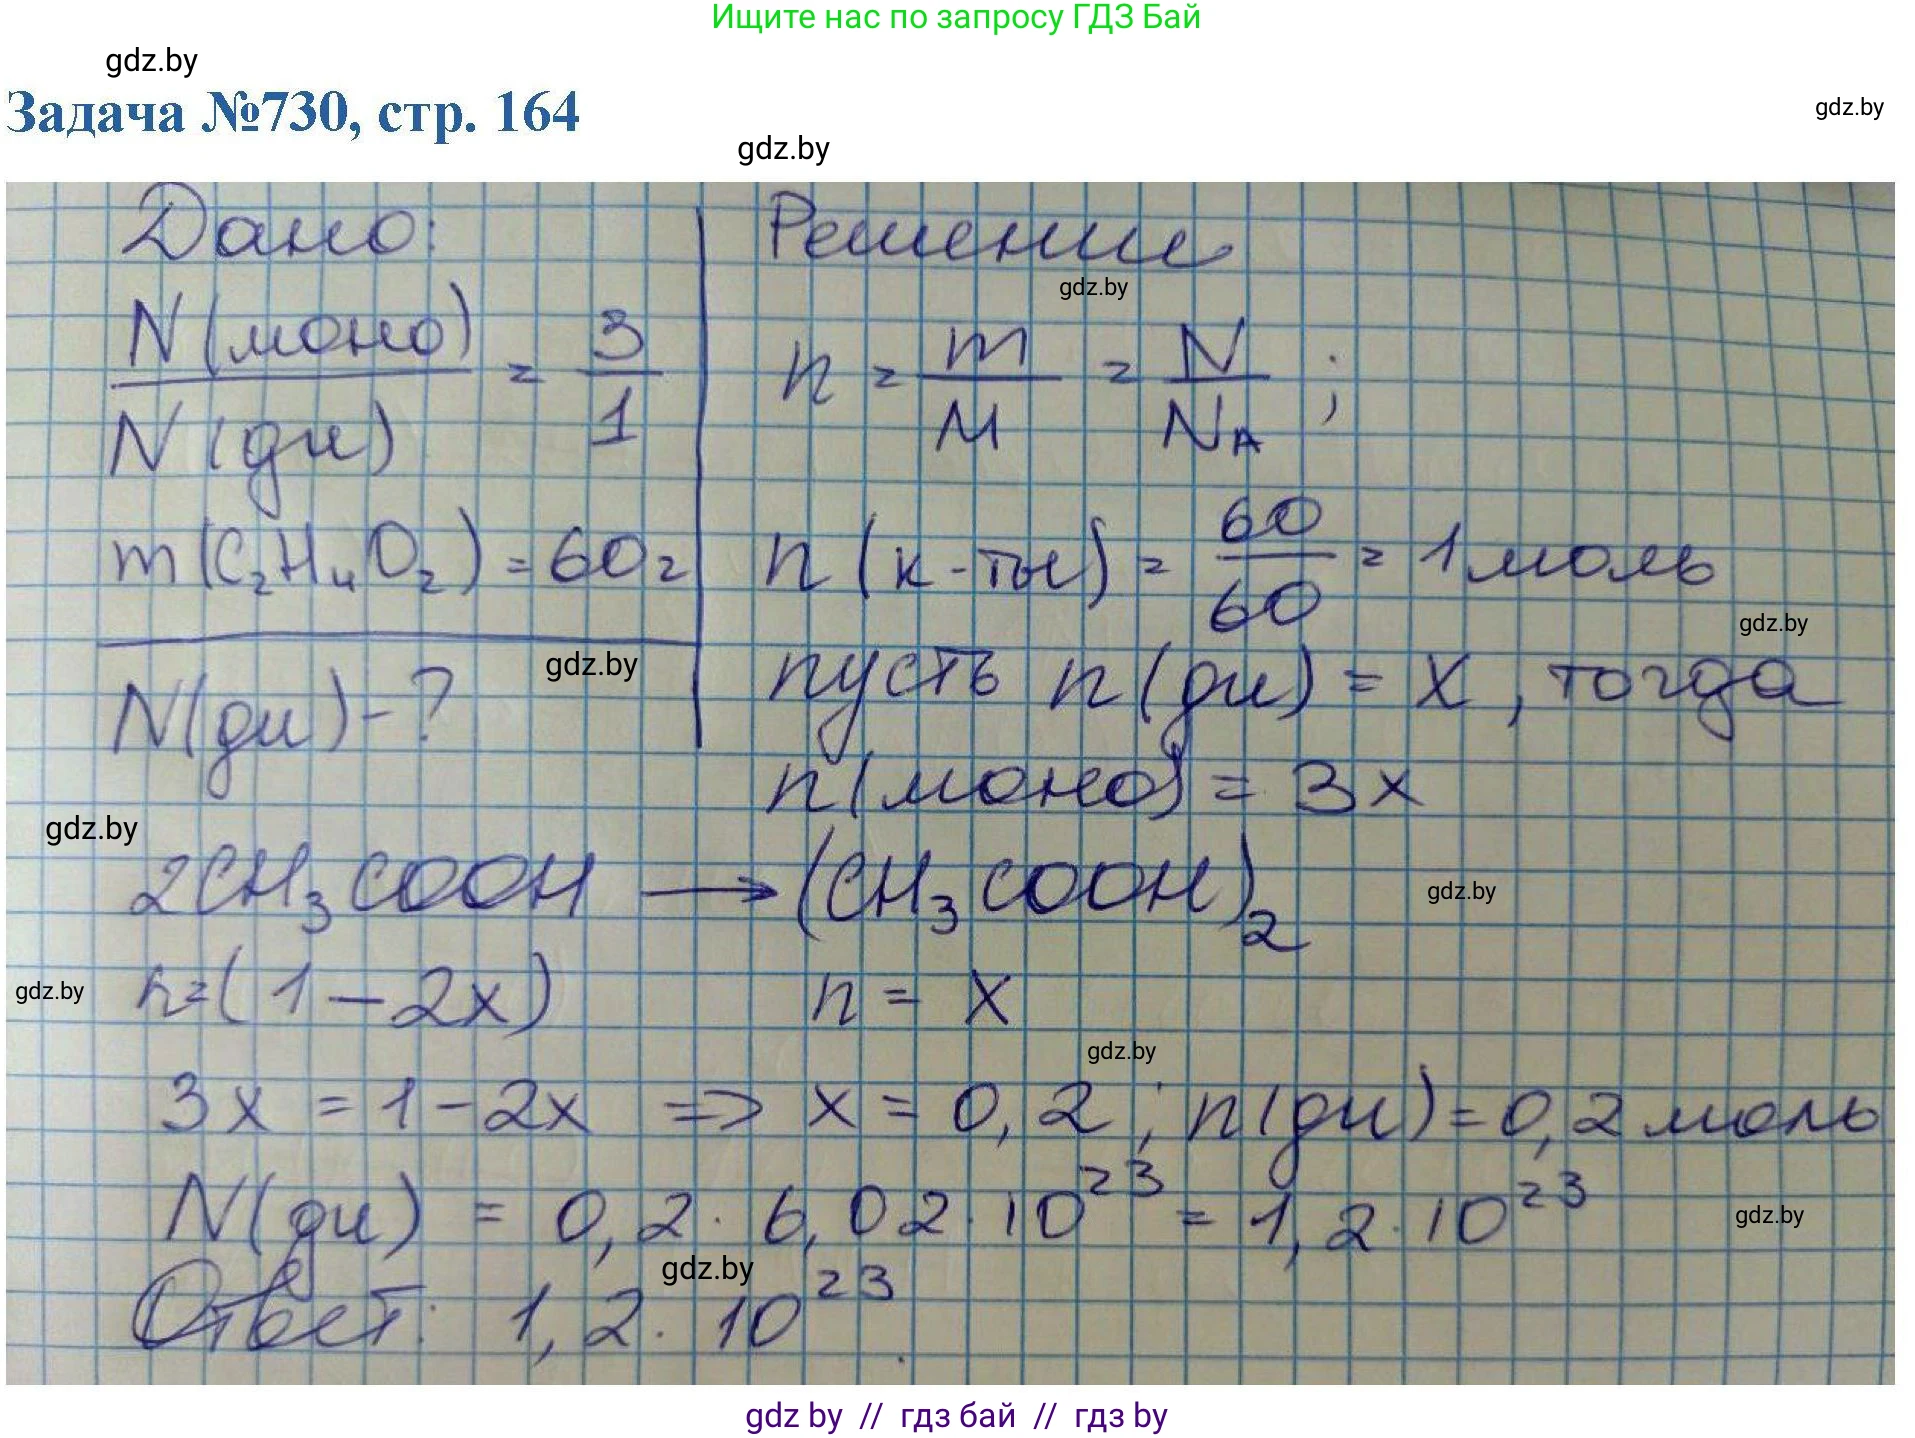 Ищите нас по запросу ГДЗ Бай
gdz.by
Задача №730, стр. 164
gdz.by
gdz.by
Дано:
N(моно)/N(ди) = 3/1
m(C₂H₄O₂) = 60г
N(ди) - ?
Решение
gdz.by
n = m/M = N/Nᴀ ;
n(к-ты) = 60/60 = 1 моль
gdz.by
gdz.by
пусть n(ди) = x, тогда
n(моно) = 3x
gdz.by
2CH₃COOH → (CH₃COOH)₂
gdz.by
gdz.by
n=(1-2x) n = x
gdz.by
3x = 1-2x => x = 0,2; n(ди) = 0,2 моль
N(ди) = 0,2 · 6,02 · 10²³ = 1,2 · 10²³
gdz.by
gdz.by
Ответ: 1,2 · 10²³.
gdz by // гдз бай // гдз by